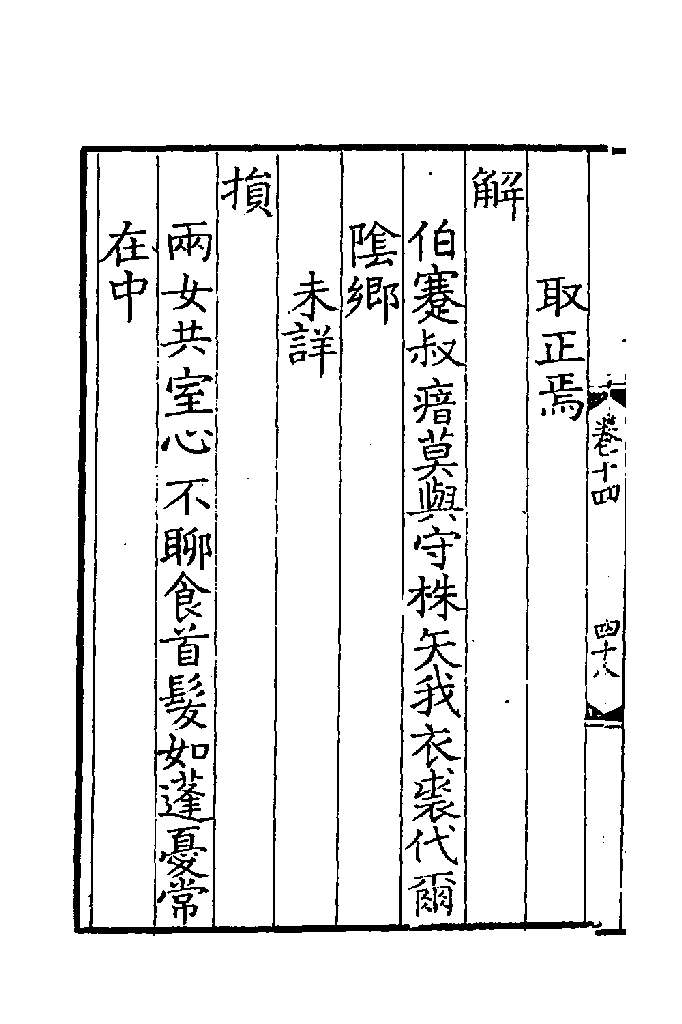 卷十四
四十八
取正焉
解
伯蹇叔瘖莫與守株矢我衣裘代爾
陰鄉
未詳
損
兩女共室心不聊食首髮如蓬憂常
在中